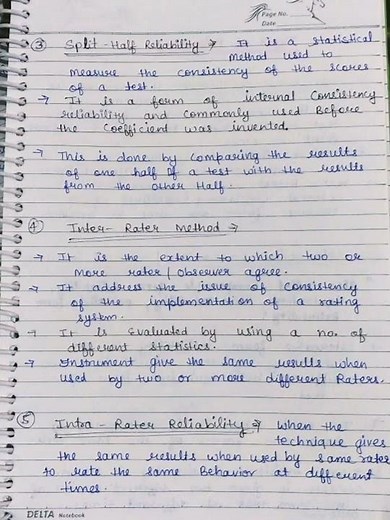 Page No.
Date
③ Split-Half Reliability → It is a statistical
method used to
measure the consistency of the scores
of a test.
→ It is a form of internal Consistency
reliability and commonly used Before
the Coefficient was invented.
→ This is done by comparing the results
of one half of a test with the results
from the other Half.
④ Inter-Rater Method →
→ It is the extent to which two or
more rater / observer agree.
→ It address the issue of Consistency
of the implementation of a rating
system.
→ It is Evaluated by using a no. of
different statistics.
→ Instrument give the same results when
used by two or more different Raters.
⑤ Intra-Rater Reliability → When the
technique gives
the same results when used by same rater
to rate the same Behavior at different
times.
DELTA Notebook